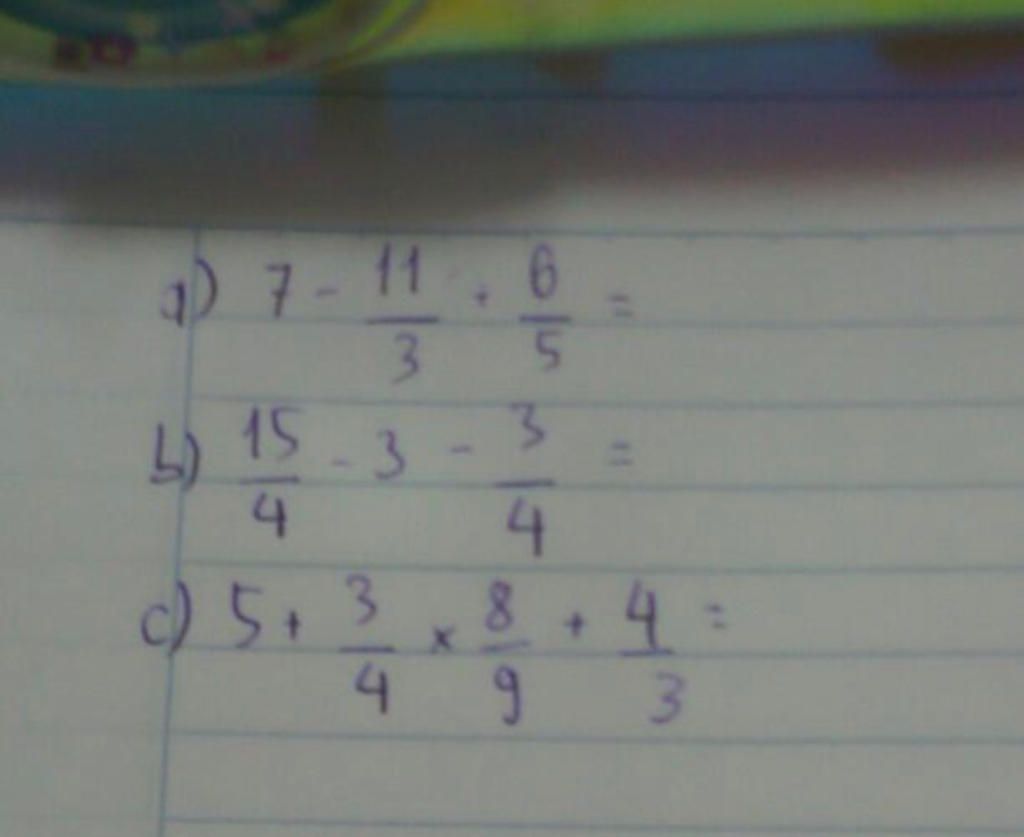 a) 7 - 11/3 + 6/5 =
b) 15/4 - 3 - 3/4 =
c) 5 + 3/4 x 8/9 + 4/3 =